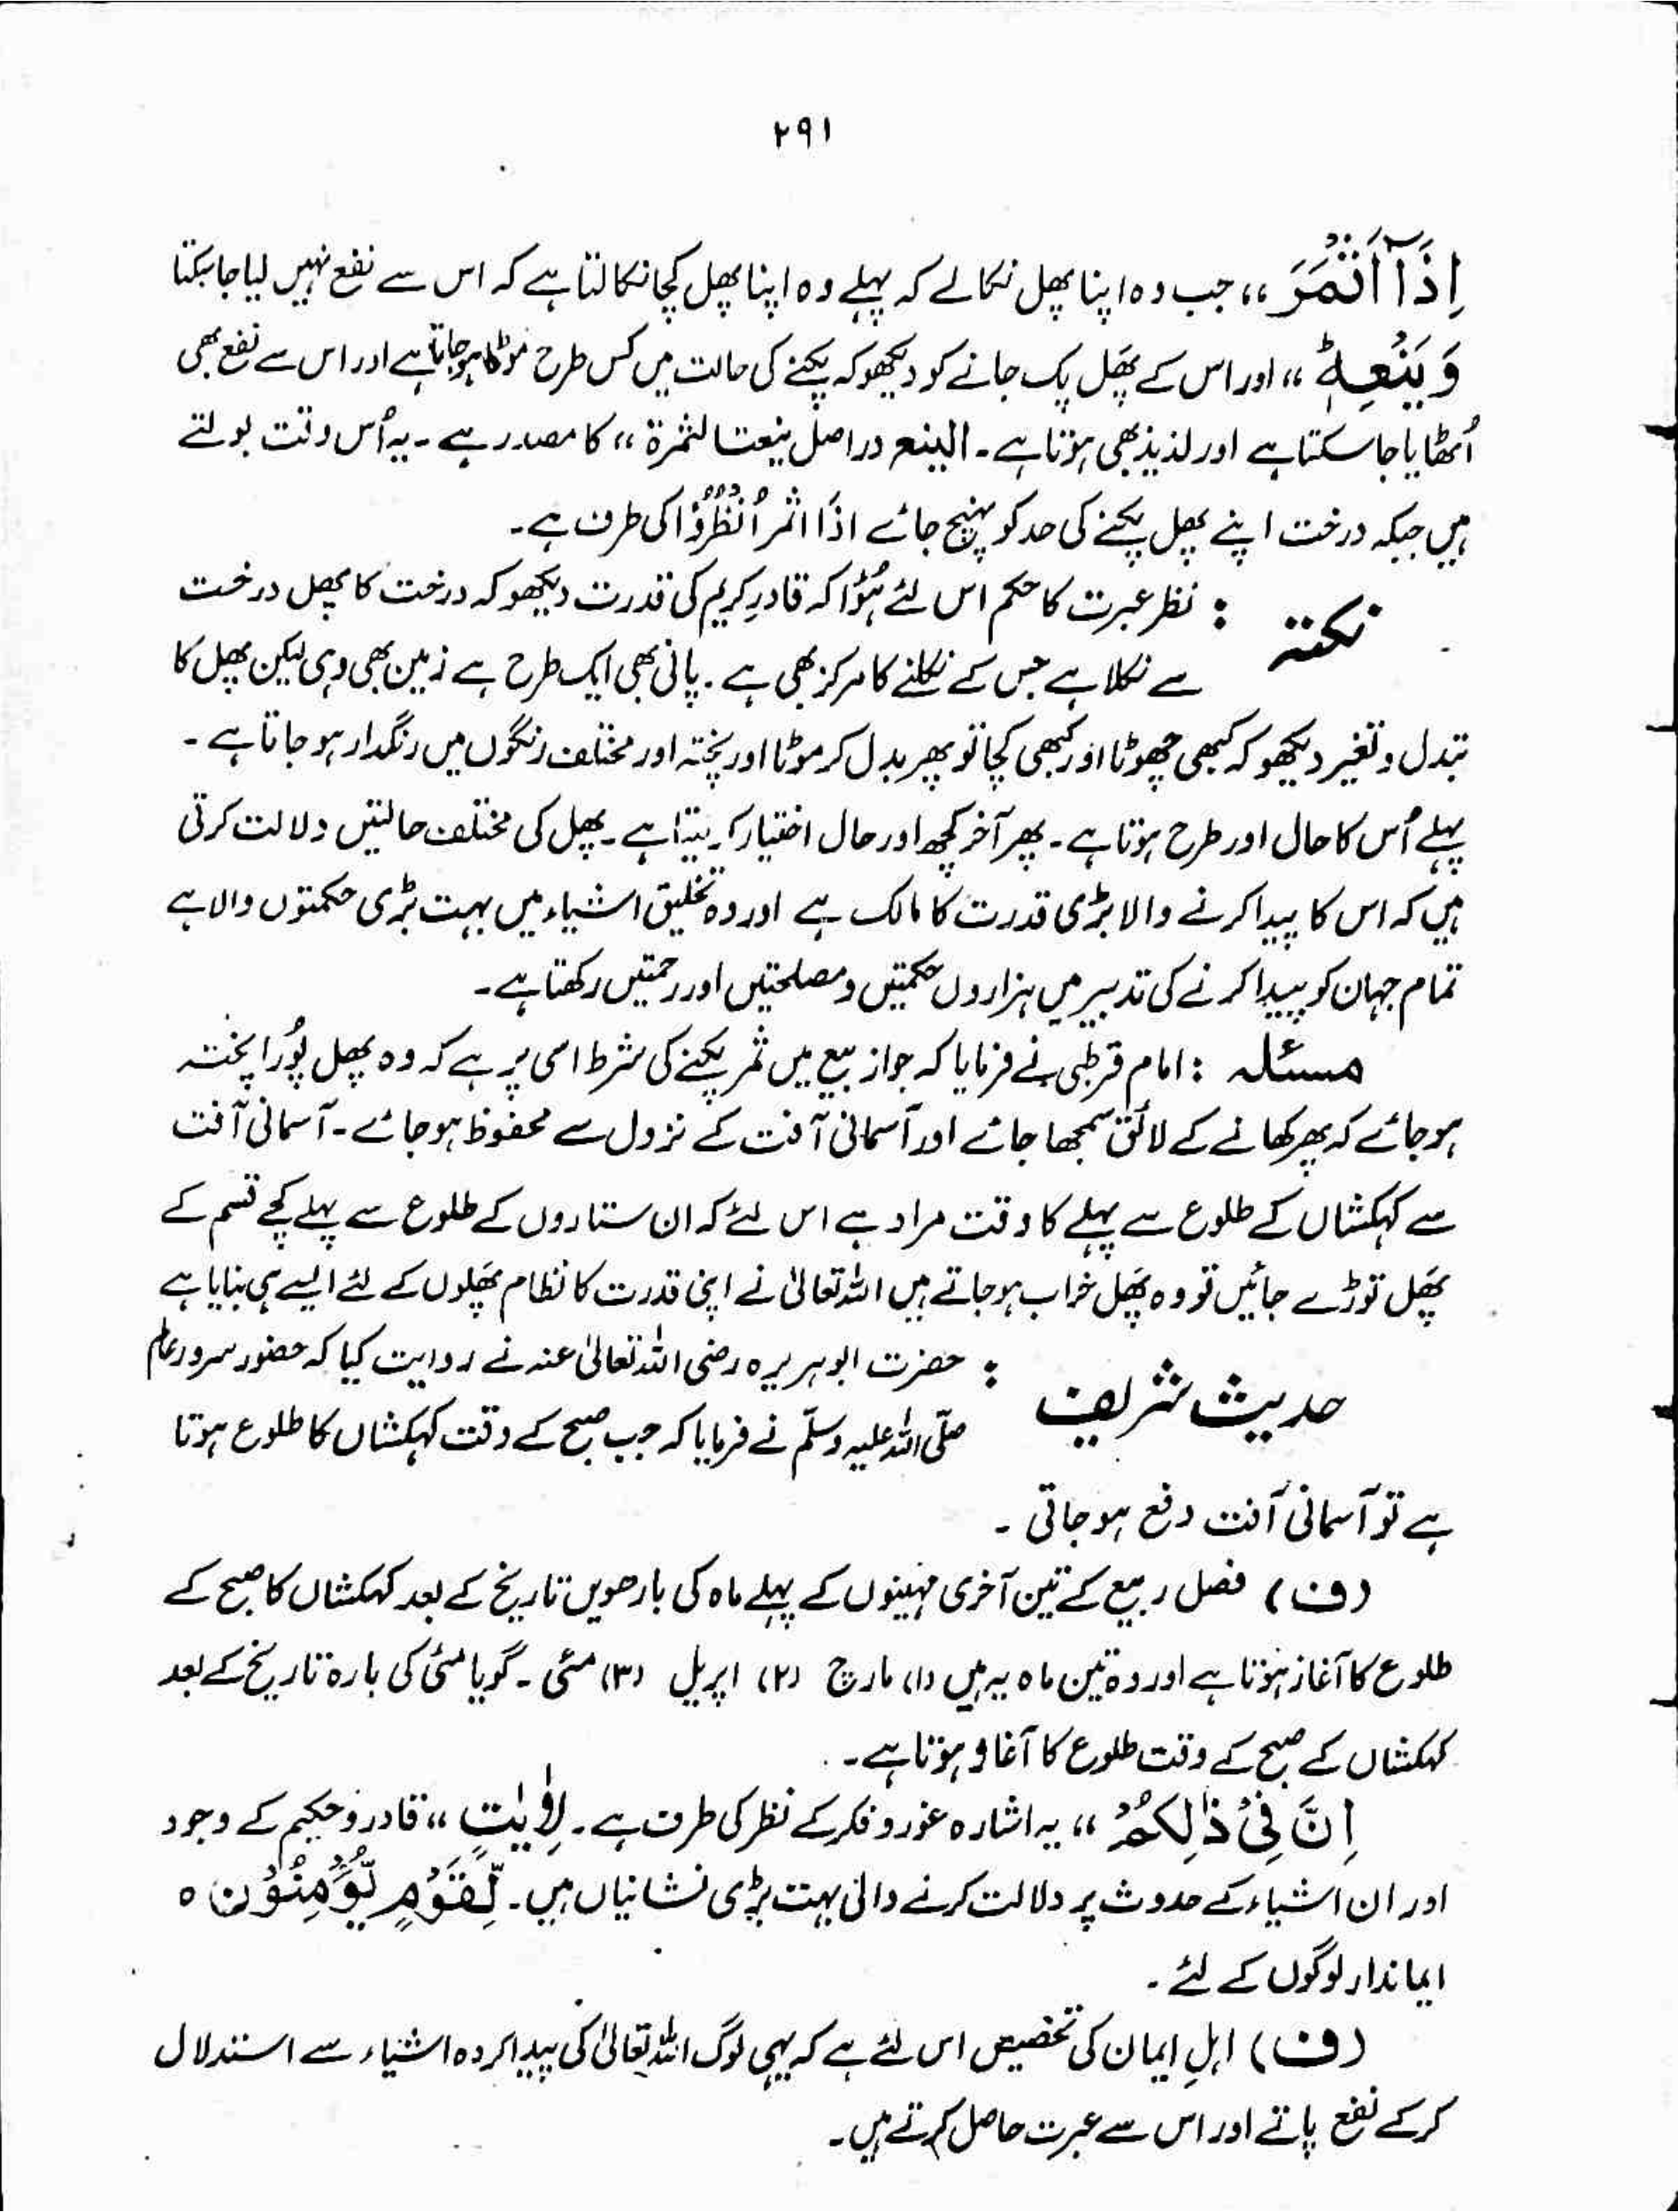 ۲۹۱
اِذَآ اَثْمَرَ ،، جب وہ اپنا پھل نکالے کہ پہلے وہ اپنا پھل کچا نکالتا ہے کہ اس سے نفع نہیں لیا جا سکتا
وَ یَنْعِہٖ ؕ ،، اور اس کے پھَل پک جانے کو دیکھو کہ پکنے کی حالت میں کس طرح موٹا ہو جاتا ہے اور اس سے نفع بھی
اُٹھایا جا سکتا ہے اور لذیذ بھی ہوتا ہے ۔ الینع دراصل ینعت الثمرة ،، کا مصدر ہے ۔ یہ اُس وقت بولتے
ہیں جبکہ درخت اپنے پھل پکنے کی حد کو پہنچ جائے اذَا اثمر اُنْظُرُوْا کی طرف ہے۔
نکتہ : نظر عبرت کا حکم اس لئے ہُؤا کہ قادرِ کریم کی قدرت دیکھو کہ درخت کا پھل درخت
سے نکلا ہے جس کے نکلنے کا مرکز بھی ہے ۔ پانی بھی ایک طرح ہے زمین بھی وہی لیکن پھل کا
تبدل و تغیر دیکھو کہ کبھی چھوٹا اور کبھی کچا تو پھر بدل کر موٹا اور پختہ اور مختلف رنگوں میں رنگدار ہو جاتا ہے ۔
پہلے اُس کا حال اور طرح ہوتا ہے ۔ پھر آخر کچھ اور حال اختیار کر لیتا ہے ۔ پھل کی مختلف حالتیں دلالت کرتی
ہیں کہ اس کا پیدا کرنے والا بڑی قدرت کا مالک ہے اور وہ تخلیق اشیاء میں بہت بڑی حکمتوں والا ہے
تمام جہان کو پیدا کرنے کی تدبیر میں ہزاروں حکمتیں و مصلحتیں اور رحمتیں رکھتا ہے ۔
مسئلہ : امام قرطبی نے فرمایا کہ جواز بیع میں ثمر پکنے کی شرط اسی پر ہے کہ وہ پھل پُورا پختہ
ہو جائے کہ پھر کھانے کے لائق سمجھا جائے اور آسمانی آفت کے نزول سے محفوظ ہو جائے ۔ آسمانی آفت
سے کہکشاں کے طلوع سے پہلے کا وقت مراد ہے اس لئے کہ ان ستاروں کے طلوع سے پہلے کچے قسم کے
پھَل توڑے جائیں تو وہ پھَل خراب ہو جاتے ہیں اللہ تعالیٰ نے اپنی قدرت کا نظام پھَلوں کے لئے ایسے ہی بنایا ہے
حدیث شریف : حضرت ابوہریرہ رضی اللہ تعالیٰ عنہ نے روایت کیا کہ حضور سرور عالم
صلّی اللہ علیہ وسلّم نے فرمایا کہ جب صبح کے وقت کہکشاں کا طلوع ہوتا
ہے تو آسمانی آفت دفع ہو جاتی ۔
(ف) فصل ربیع کے تین آخری مہینوں کے پہلے ماہ کی بارھویں تاریخ کے بعد کہکشاں کا صبح کے
طلوع کا آغاز ہوتا ہے اور وہ تین ماہ یہ ہیں (۱) مارچ (۲) اپریل (۳) مئی ۔ گویا مئی کی بارہ تاریخ کے بعد
کہکشاں کے صبح کے وقت طلوع کا آغاز ہوتا ہے ۔
اِنَّ فِیْ ذٰلِکُمْ ،، یہ اشارہ غور و فکر کے نظر کی طرف ہے ۔ لَاٰیٰتٍ ،، قادر و حکیم کے وجود
اور ان اشیاء کے حدوث پر دلالت کرنے والی بہت بڑی نشانیاں ہیں ۔ لِّقَوْمٍ یُّؤْمِنُوْنَ ہ
ایماندار لوگوں کے لئے ۔
(ف) اہلِ ایمان کی تخصیص اس لئے ہے کہ یہی لوگ اللہ تعالیٰ کی پیدا کردہ اشیاء سے استدلال
کر کے نفع پاتے اور اس سے عبرت حاصل کرتے ہیں ۔